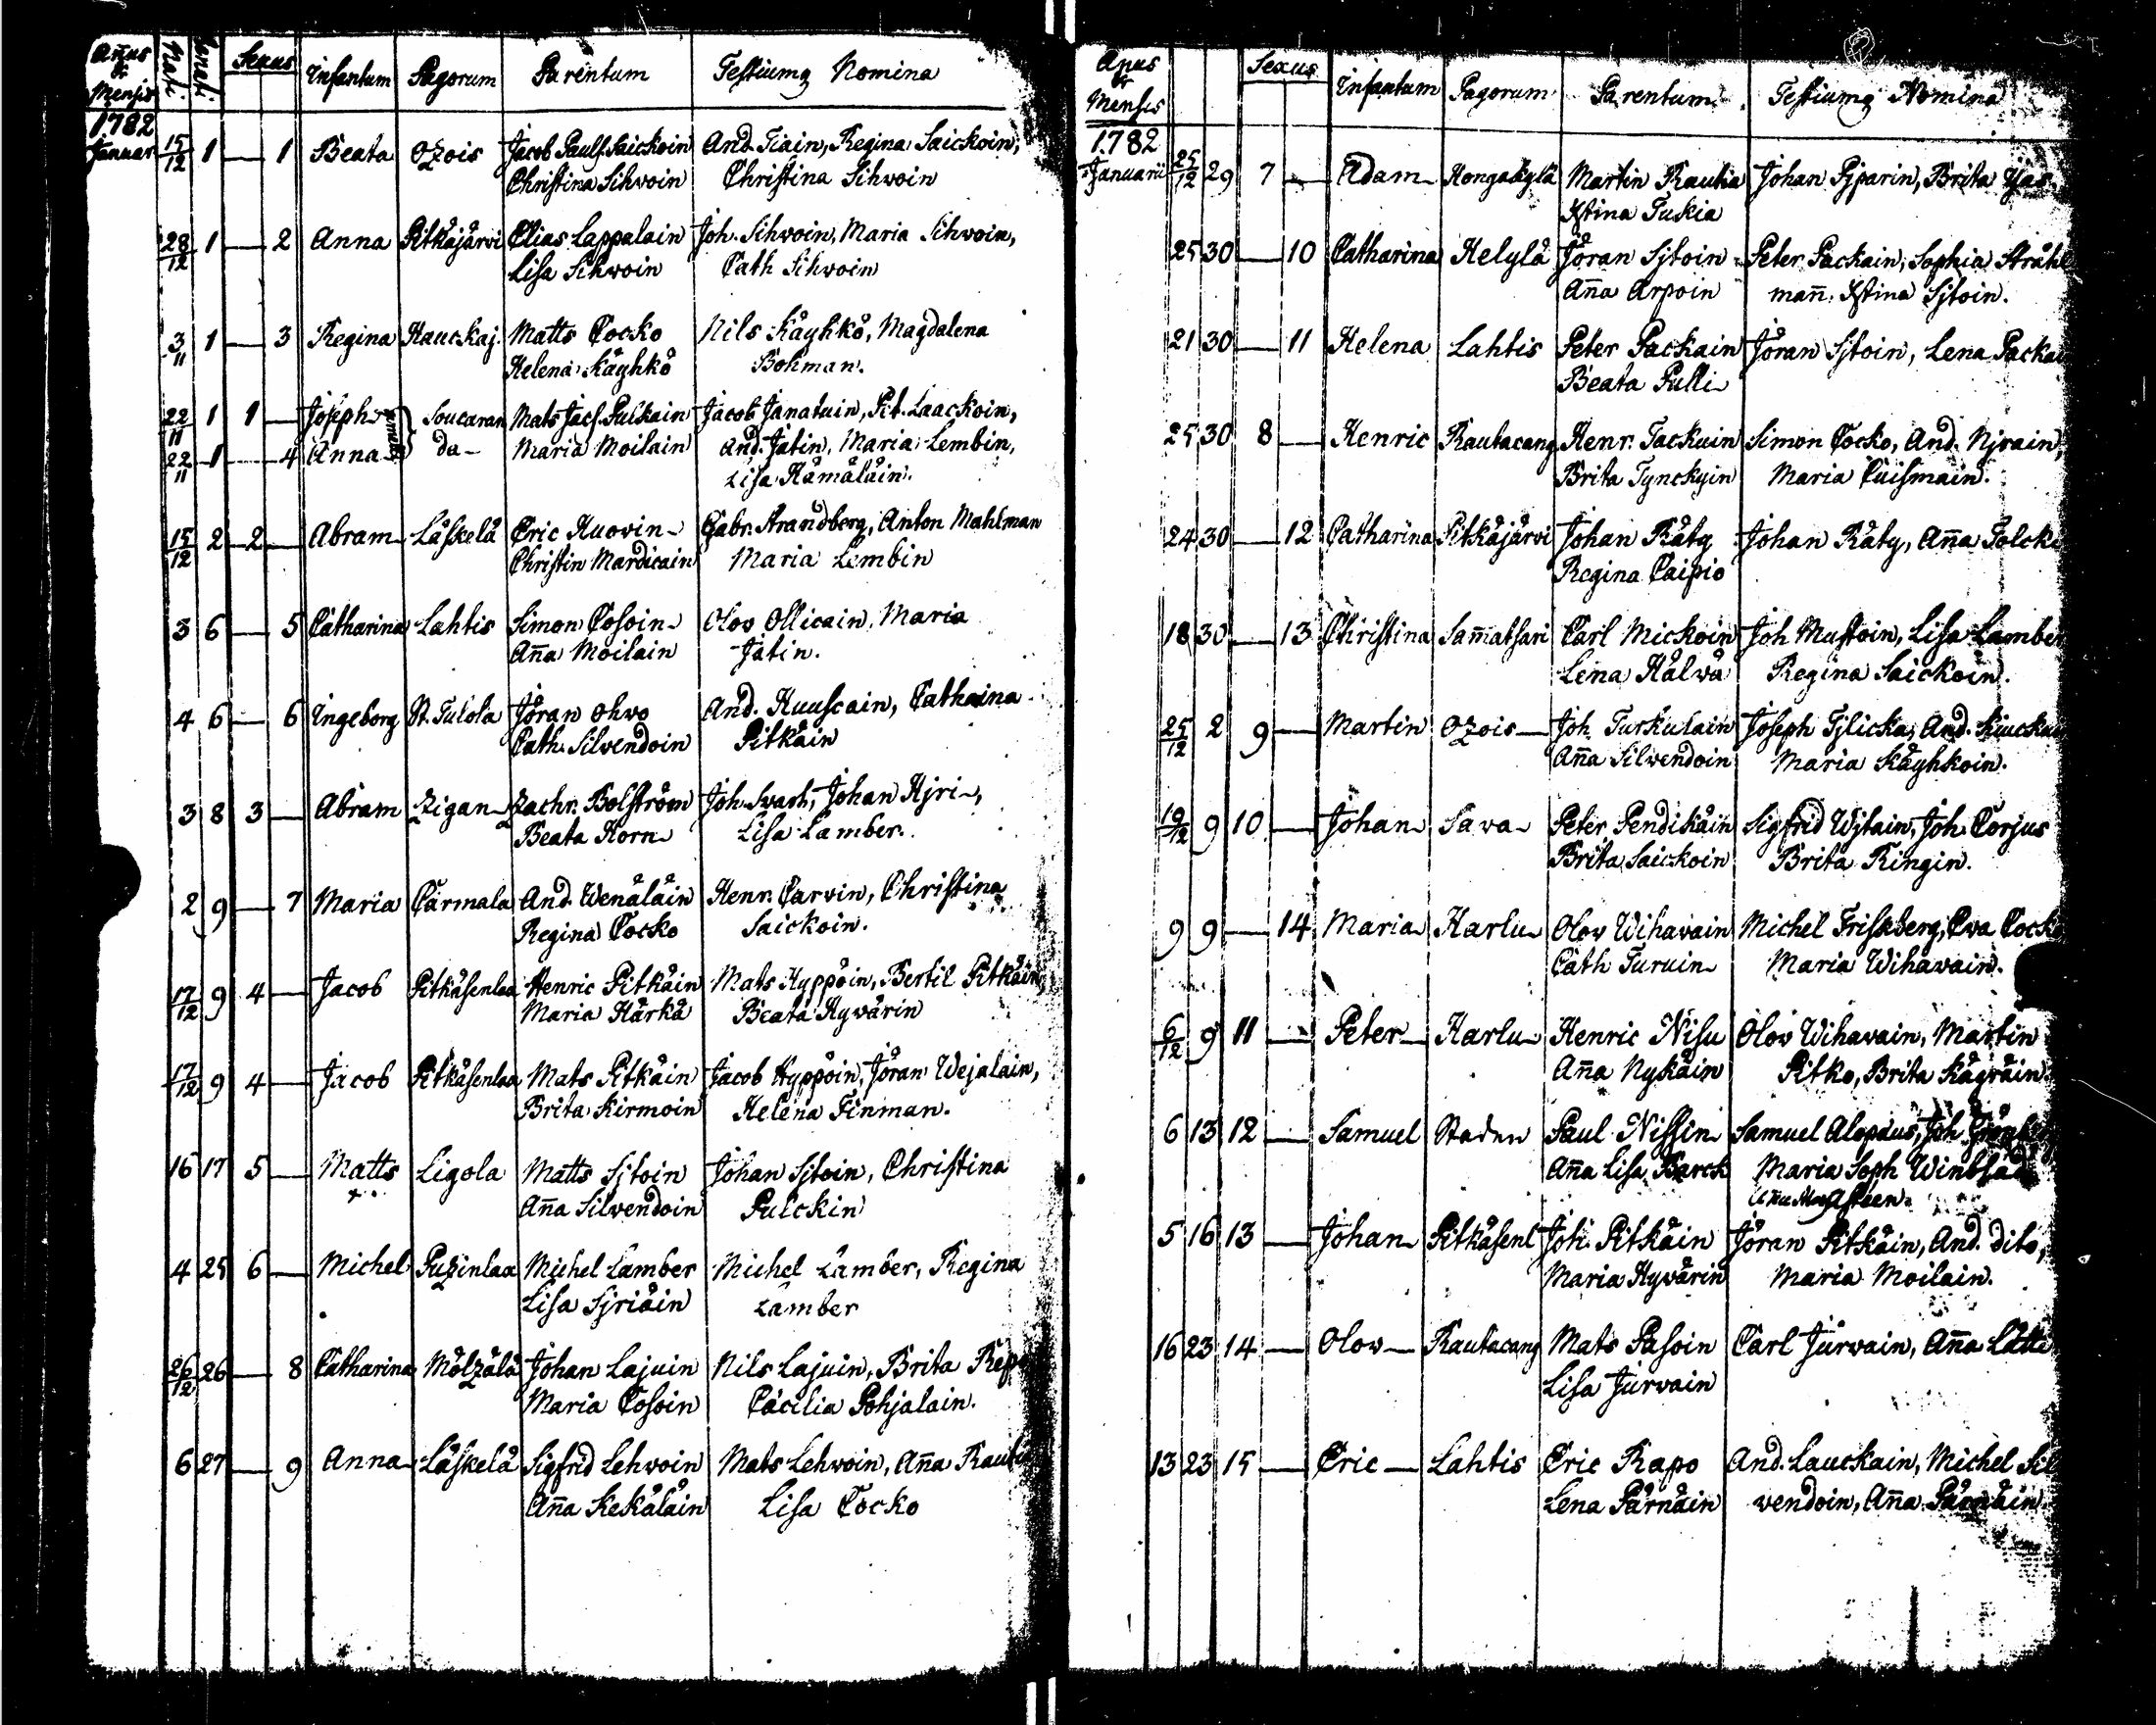 Añus & Mensis Nati Renati Sexus Infantum Pagorum Parentum Testiumq Nomina
1782
Januar 15/12 1 — 1 Beata Ozois Jacob Paulss. Saickoin And. Tiain, Regina Saickoin,
Christina Sihvoin Christina Sihvoin
28/12 1 — 2 Anna Pitkäjärvi Elias Lappalain Joh. Sihvoin, Maria Sihvoin,
Lisa Sihvoin Cath Sihvoin
3/11 1 — 3 Regina Hauckaj. Matts Cocko Nils Käyhkö, Magdalena
Helena Käyhkö Bohman.
22/11 1 1 — Joseph gemelli Soucaran Mats Jacs. Pulkain Jacob Janatuin, Pet. Laackoin,
22/11 1 — 4 Anna da Maria Moilain And. Jatin, Maria Lembin,
Lisa Hämäläin.
15/12 2 2 — Abram Läskelä Eric Huovin Gabr. Strandberg, Anton Mahlman
Christin Mardicain Maria Lembin
3 6 — 5 Catharina Lahtis Simon Cosoin Olov Ollicain, Maria
Aña Moilain Jatin.
4 6 — 6 Ingeborg St. Tulola Jöran Ohvo And. Huuscain, Cathaina
Cath. Silvendoin Pitkäin
3 8 3 — Abram Zigan Zachr. Bolström Joh. Svart, Johan Hjri,
Beata Horn Lisa Lamber.
2 9 — 7 Maria Carmala And. Wenäläin Henr. Carvin, Christina
Regina Cocko Saickoin.
17/12 9 4 — Jacob Pitkäsenlax Henric Pitkäin Mats Hyppöin, Bertil Pitkäin,
Maria Härkä Beata Hyvärin
17/12 9 4 — Jacob Pitkäsenlax Mats Pitkäin Jacob Hyppöin, Jöran Wejalain,
Brita Kirmoin Helena Finman.
16 17 5 — Matts Ligola Matts Sjtoin Johan Sjtoin, Christina
Aña Silvendoin Pulckin
4 25 6 — Michel Puzinlax Michel Lamber Michel Lamber, Regina
Lisa Sjriäin Lamber
26/12 26 — 8 Catharina Mölzälä Johan Lajuin Nils Lajuin, Brita
Maria Cosoin Cäcilia Pohjalain.
6 27 — 9 Anna Läskelä Sigfrid Lehvoin Mats Lehvoin, Aña
Aña Kekäläin Lisa Cocko
Añus & Mensis Sexus Infantum Pagorum Parentum Testiumq Nomina
1782
Januarii 25/12 29 7 — Adam Hongakylä Martin Rautia Johan Pjparin, Brita
Xstina Tuskia
25 30 — 10 Catharina Helylä Jöran Sjtoin Peter Packain, Sophia Stråhl
Aña Arpoin mañ. Xstina Sjtoin.
21 30 — 11 Helena Lahtis Peter Packain Jöran Sjtoin, Lena Packai
Beata Pulli
25 30 8 — Henric Rautacang Henr. Tackuin Simon Cocko, And. Njrain,
Brita Tynckyin Maria Cuismain.
24 30 — 12 Catharina Pitkäjärvi Johan Räty Johan Räty, Aña Polcke
Regina Caipio
18 30 — 13 Christina Sam̃atsari Carl Mickoin Joh Mustoin, Lisa Lamber
Lena Hälvä Regina Saickoin.
25/12 2 9 — Martin Ozois Joh. Turkulain Joseph Tjlicka, And. Kiucka
Aña Silvendoin Maria Käyhkoin.
19/12 9 10 — Johan Sava Peter Pendikäin Sigfrid Wjtain, Joh. Corjus
Brita Saickoin Brita Ringin.
9 9 — 14 Maria Harlu Olov Wihavain Michel Friskberg, Eva Cocko
Cath Turuin Maria Wihavain.
6/12 9 11 — Peter Harlu Henric Nisu Olov Wihavain, Martin
Aña Nykäin Pitko, Brita Kägräin.
6 13 12 — Samuel Staden Paul Nissin Samuel Alopäus, Joh
Aña Lisa Barck Maria Soph Winblad
Aña Mar Asteen.
5 16 13 — Johan Pitkäsenl Joh. Pitkäin Jöran Pitkäin, And. dito,
Maria Hyvärin Maria Moilain.
16 23 14 — Olov Rautacang Mats Pasoin Carl Jürvain, Aña Lätte
Lisa Jürvain
13 23 15 — Eric Lahtis Eric Rapo And. Lauckain, Michel Sil
Lena Pärnäin vendoin, Aña Pärnäin.